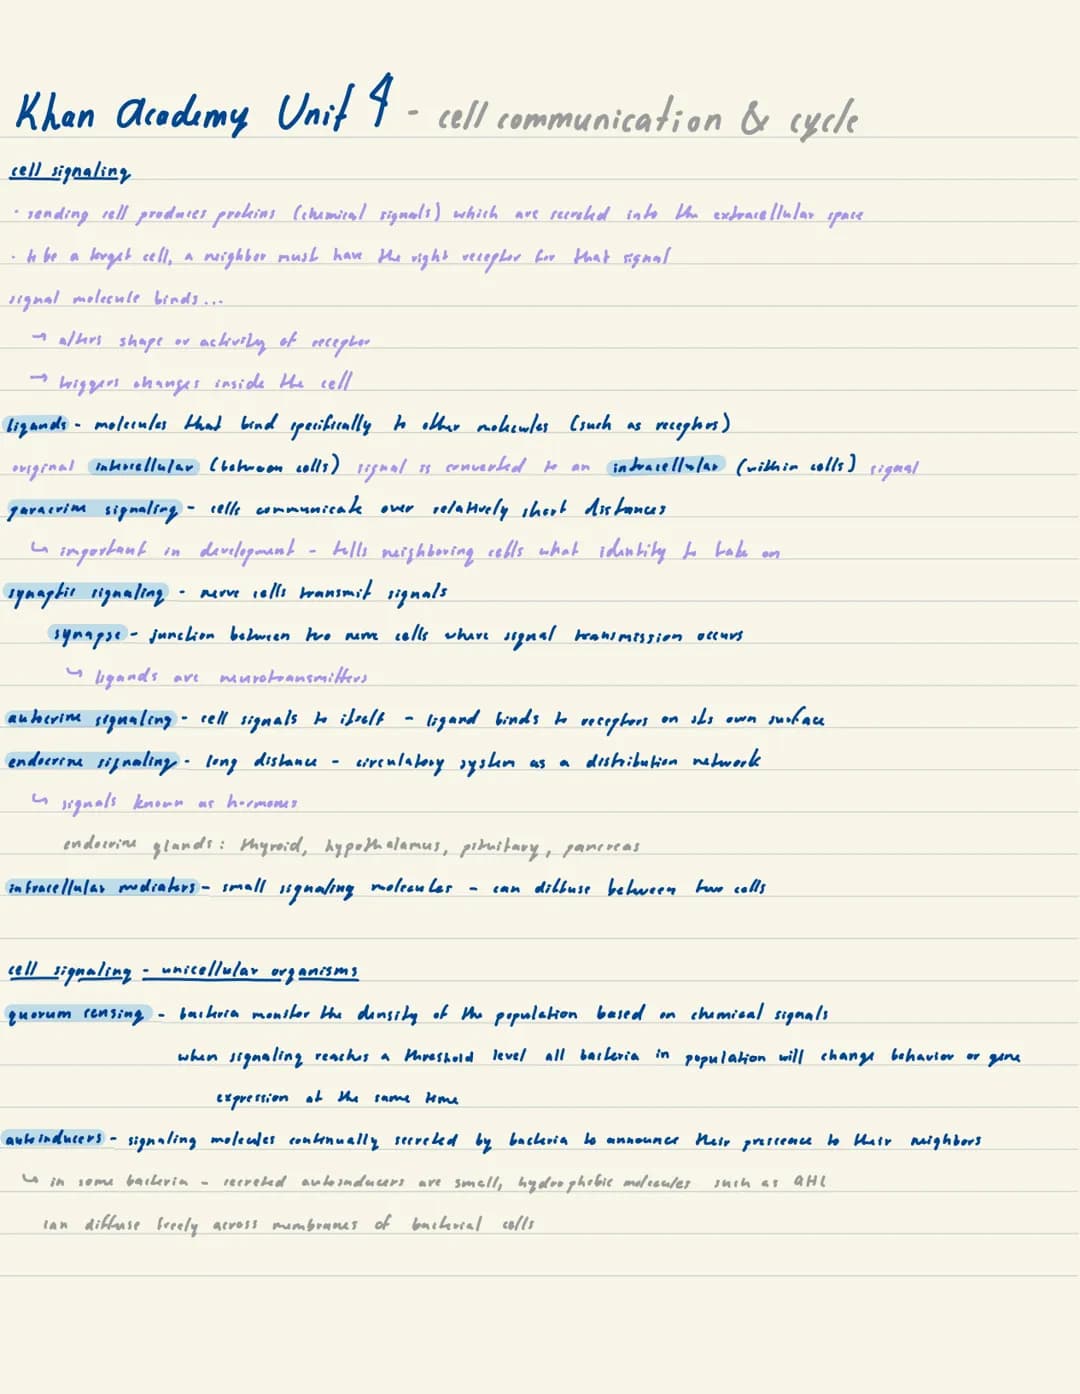 Khan Academy Unit 4 - cell communication & cycle
cell signaling
· sending cell produces proteins (chemical signals) which are secreted into the extracellular space
· to be a target cell, a neighbor must have the right receptor for that signal
signal molecule binds...
→ alters shape or activity of receptor
→ triggers changes inside the cell
ligands - molecules that bind specifically to other molecules (such as receptors)
original intercellular (between cells) signal is converted to an intracellular (within cells) signal
paracrine signaling - cells communicate over relatively short distances
↳ important in development - tells neighboring cells what identity to take on
synaptic signaling - nerve cells transmit signals
synapse - junction between two nerve cells where signal transmission occurs
↳ ligands are neurotransmitters
autocrine signaling - cell signals to itself - ligand binds to receptors on its own surface
endocrine signaling - long distance - circulatory system as a distribution network
↳ signals known as hormones
endocrine glands: thyroid, hypothalamus, pituitary, pancreas
intracellular mediators - small signaling molecules - can diffuse between two cells
cell signaling - unicellular organisms
quorum sensing - bacteria monitor the density of the population based on chemical signals
when signaling reaches a threshold level all bacteria in population will change behavior or gene
expression at the same time
autoinducers - signaling molecules continually secreted by bacteria to announce their prescence to their neighbors
↳ in some bacteria - secreted autoinducers are small, hydrophobic molecules such as AHL
can diffuse freely across membranes of bacterial cells